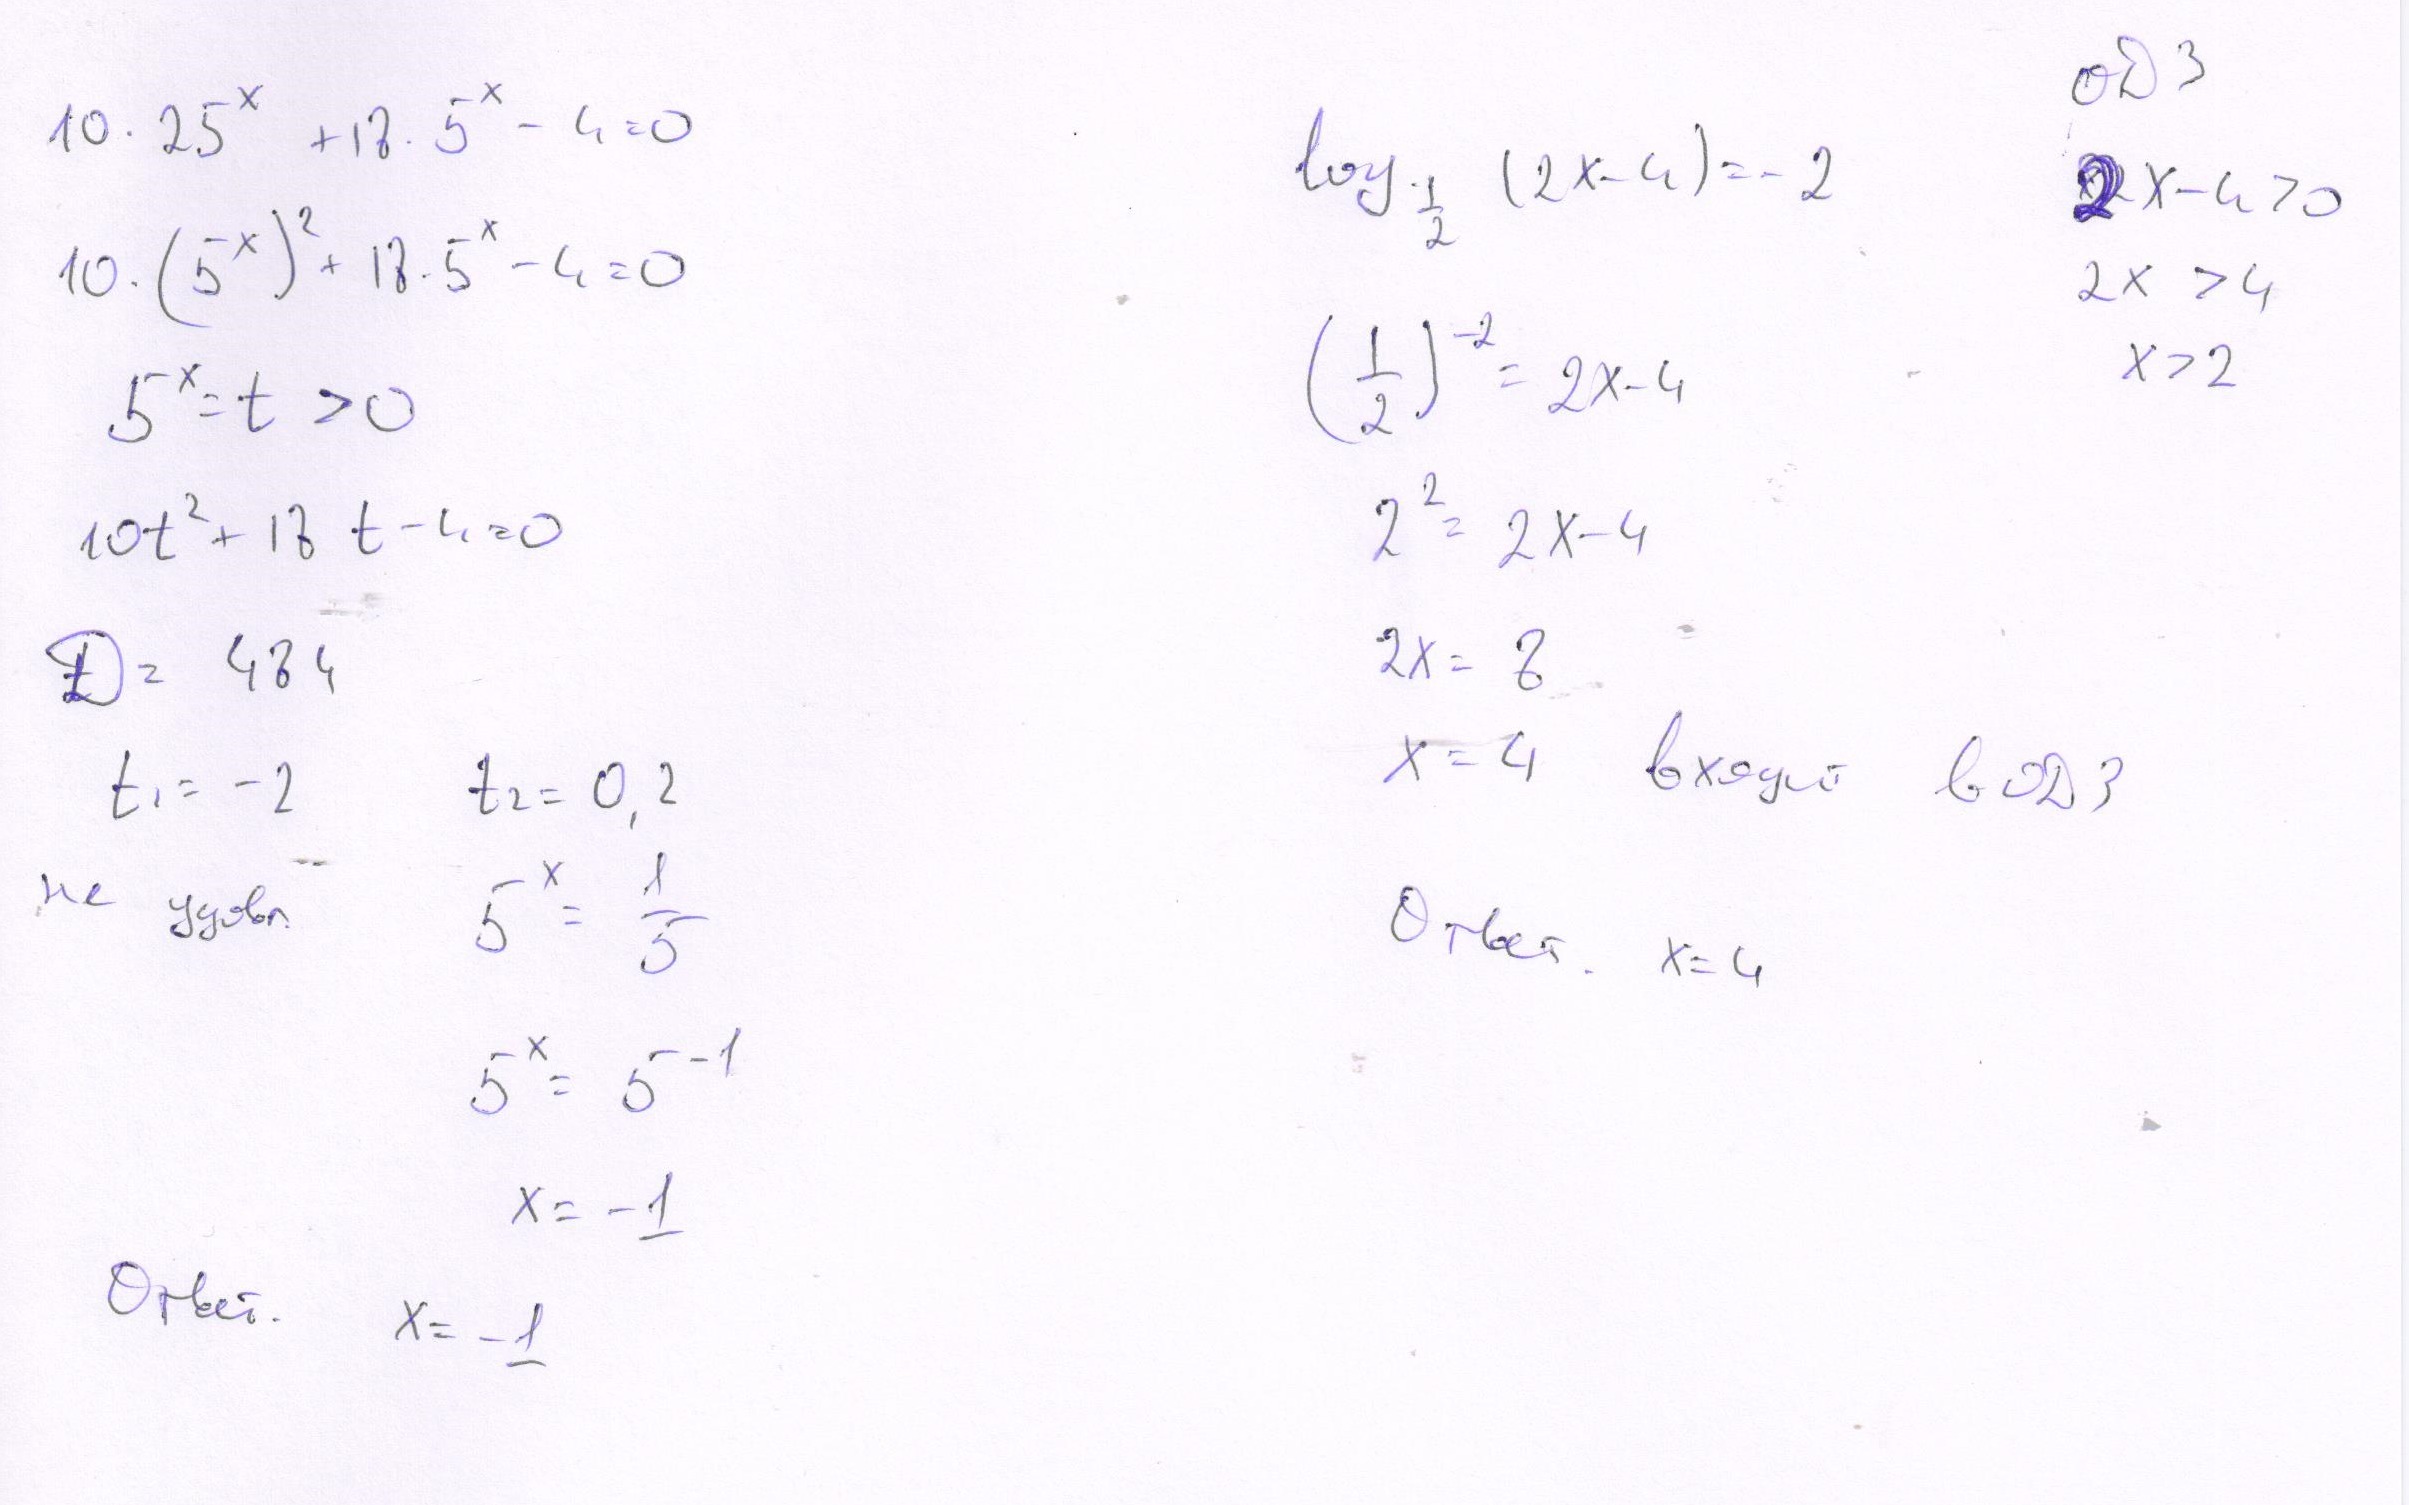 10 · 25^x + 18 · 5^x - 4 = 0
10 · (5^x)^2 + 18 · 5^x - 4 = 0
5^x = t > 0
10t^2 + 18 t - 4 = 0
D = 484
t1 = -2 t2 = 0,2
не удовл. 5^x = 1/5
5^x = 5^-1
x = -1
Ответ. x = -1
log_1/2 (2x-4) = -2
(1/2)^-2 = 2x-4
2^2 = 2x-4
2x = 8
x = 4 входит в ОДЗ
Ответ. x = 4
ОДЗ
2x-4>0
2x > 4
x>2